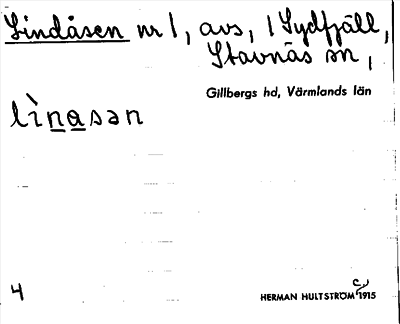 Lindåsen nr 1, avs, i Sydfjäll,
Stavnäs sn,
Gillbergs hd, Värmlands län
lìnasən
4
HERMAN HULTSTRÖM 1915